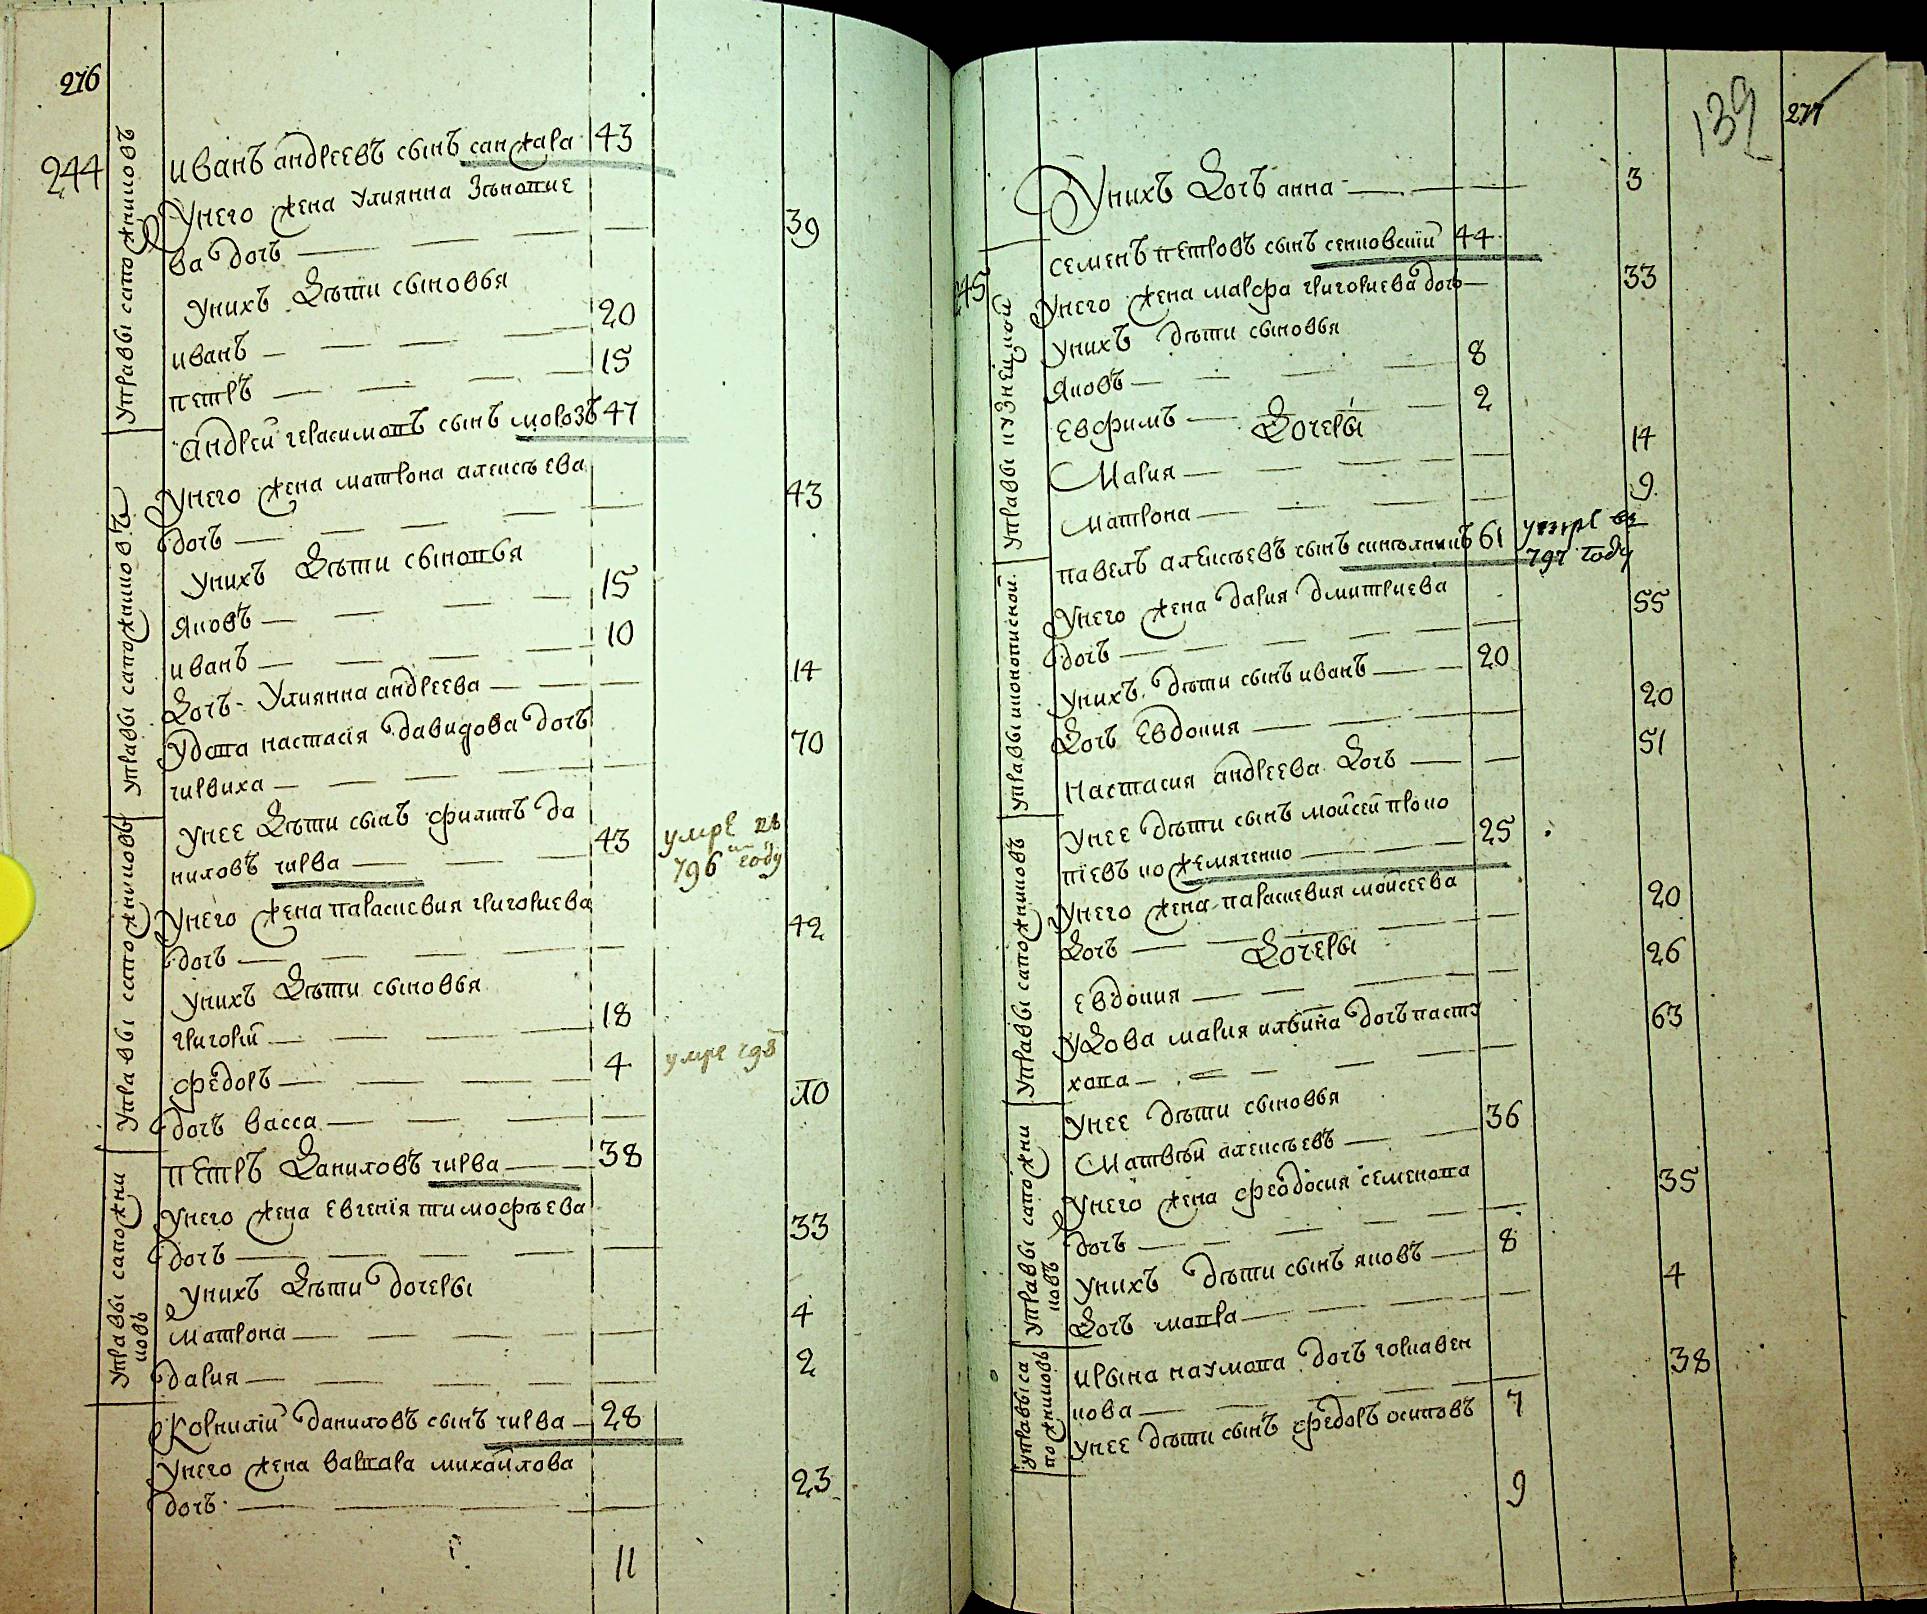 276
244
управы сапожников
иванъ андреевъ сынъ санжара 43
Унего жена Улиянна Зѣнопие
ва дочь 39
Унихъ дѣти сыновья
иванъ 20
петръ 15
управы сапожниковъ
андрей герасимовъ сынъ морозъ 47
Унего жена матрона алексѣева
дочь 43
Унихъ дѣти сыновья
яковъ 15
иванъ 10
дочь Улиянна андреева 14
Удова настасія давидова дочь
чирвиха 70
управы сапожниковъ
Унее дѣти сынъ филипъ да
ниловъ чирва 43 умре въ
796 году
Унего жена параскевия григориева
дочь 42
Унихъ дѣти сыновья
григорий 18
федоръ 4 умре 798
дочь васса 10
управы сапожни
ковъ
петръ даниловъ чирва 38
Унего жена евгенія тимофѣева
дочь 33
Унихъ дѣти дочеры
матрона 4
дария 2
Корнилий даниловъ сынъ чирва 28
Унего жена варвара михайлова
дочь 23
11
139
277
Унихъ дочь анна 3
245
управы кузнецкой
семенъ петровъ сынъ сенковский 44
Унего жена марфа григориева дочь 33
Унихъ дѣти сыновья
яковъ 8
евфимъ 2
дочеры
Мария 14
матрона 9
управы иконописной
павелъ алексѣевъ сынъ 61 умре въ
797 году
Унего жена дария дмитриева
дочь 55
Унихъ дѣти сынъ иванъ 20
дочь евдокия 20
Настасия андреева дочь 51
управы сапожниковъ
Унее дѣти сынъ мойсей проко
піевъ кожемяченко 25
Унего жена параскевия мойсеева
дочь 20
дочеры
евдокия 26
Удова мария ильина дочь пасту
хова 63
управы сапожни
ковъ
Унее дѣти сыновья
Матвѣй алексѣевъ 36
Унего жена феодосия семенова
дочь 35
Унихъ дѣти сынъ яковъ 8
дочь мавра 4
управы са
пожниковъ
ирына наумова дочь корнавен
кова 38
Унее дѣти сынъ федоръ осиповъ 7
9